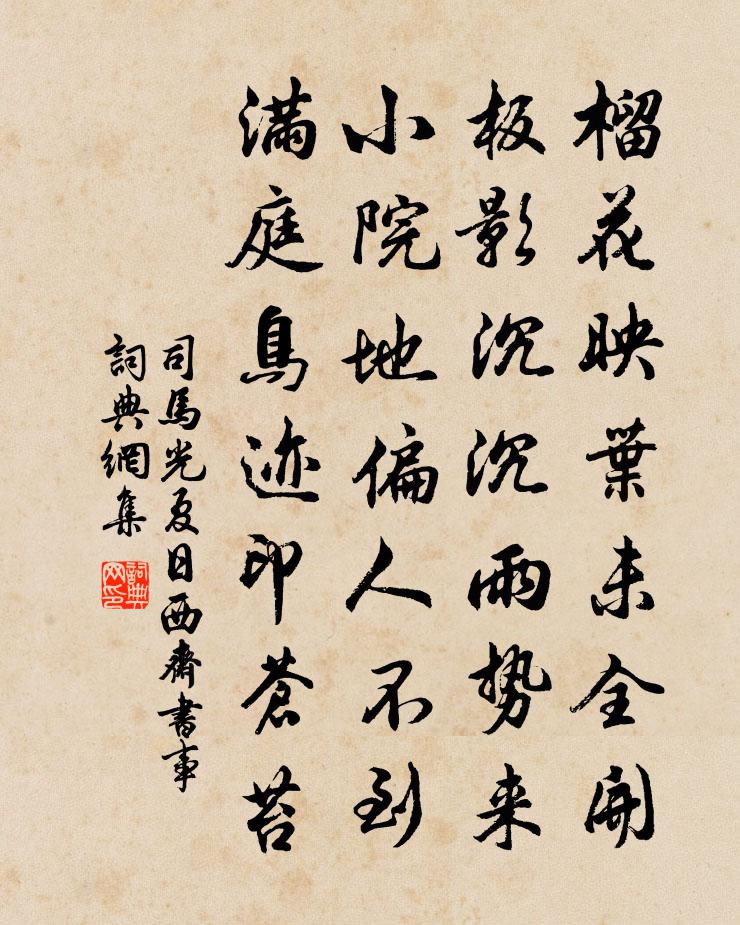 榴花映葉未全開
板影沉沉雨势来
小院地偏人不到
滿庭鳥迹印蒼苔
司馬光夏日西齋書事
詞典網集
詞典网印